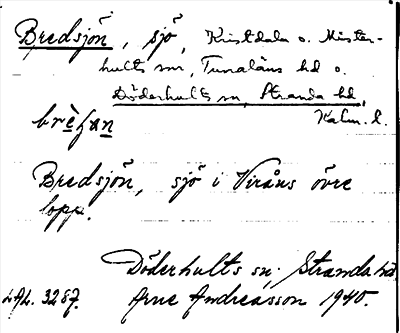 Bredsjön, sjö, Kristdala o. Mister-
hults snr, Tunaläns hd o.
Döderhults sn, Stranda hd,
Kalm. l.
Bredsjön, sjö i Viråns övre
lopp.
Döderhults sn; Stranda hd
LAL. 3287. Arne Andreasson 1940.